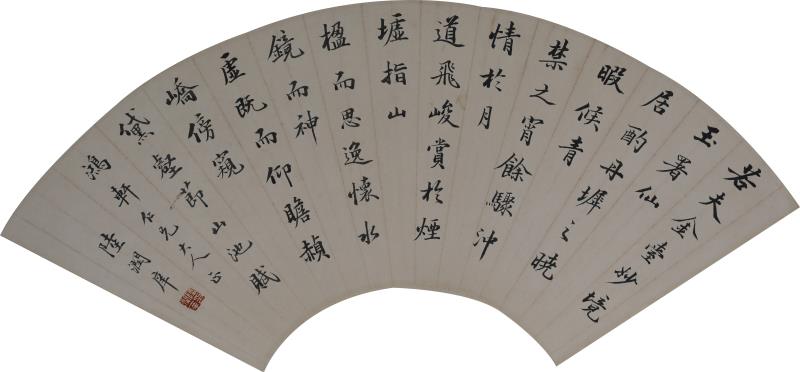 若夫金堂妙境
玉署仙
居酌丹墀之曉
暇候青
禁之宵餘驟沖
情於月
道飛峻賞於煙
墟指山
楹而思逸懷水
鏡而神
虛既而仰瞻赬
嶠傍窺
黛壑 節山池賦
鴻軒仁兄大人正
陸潤庠